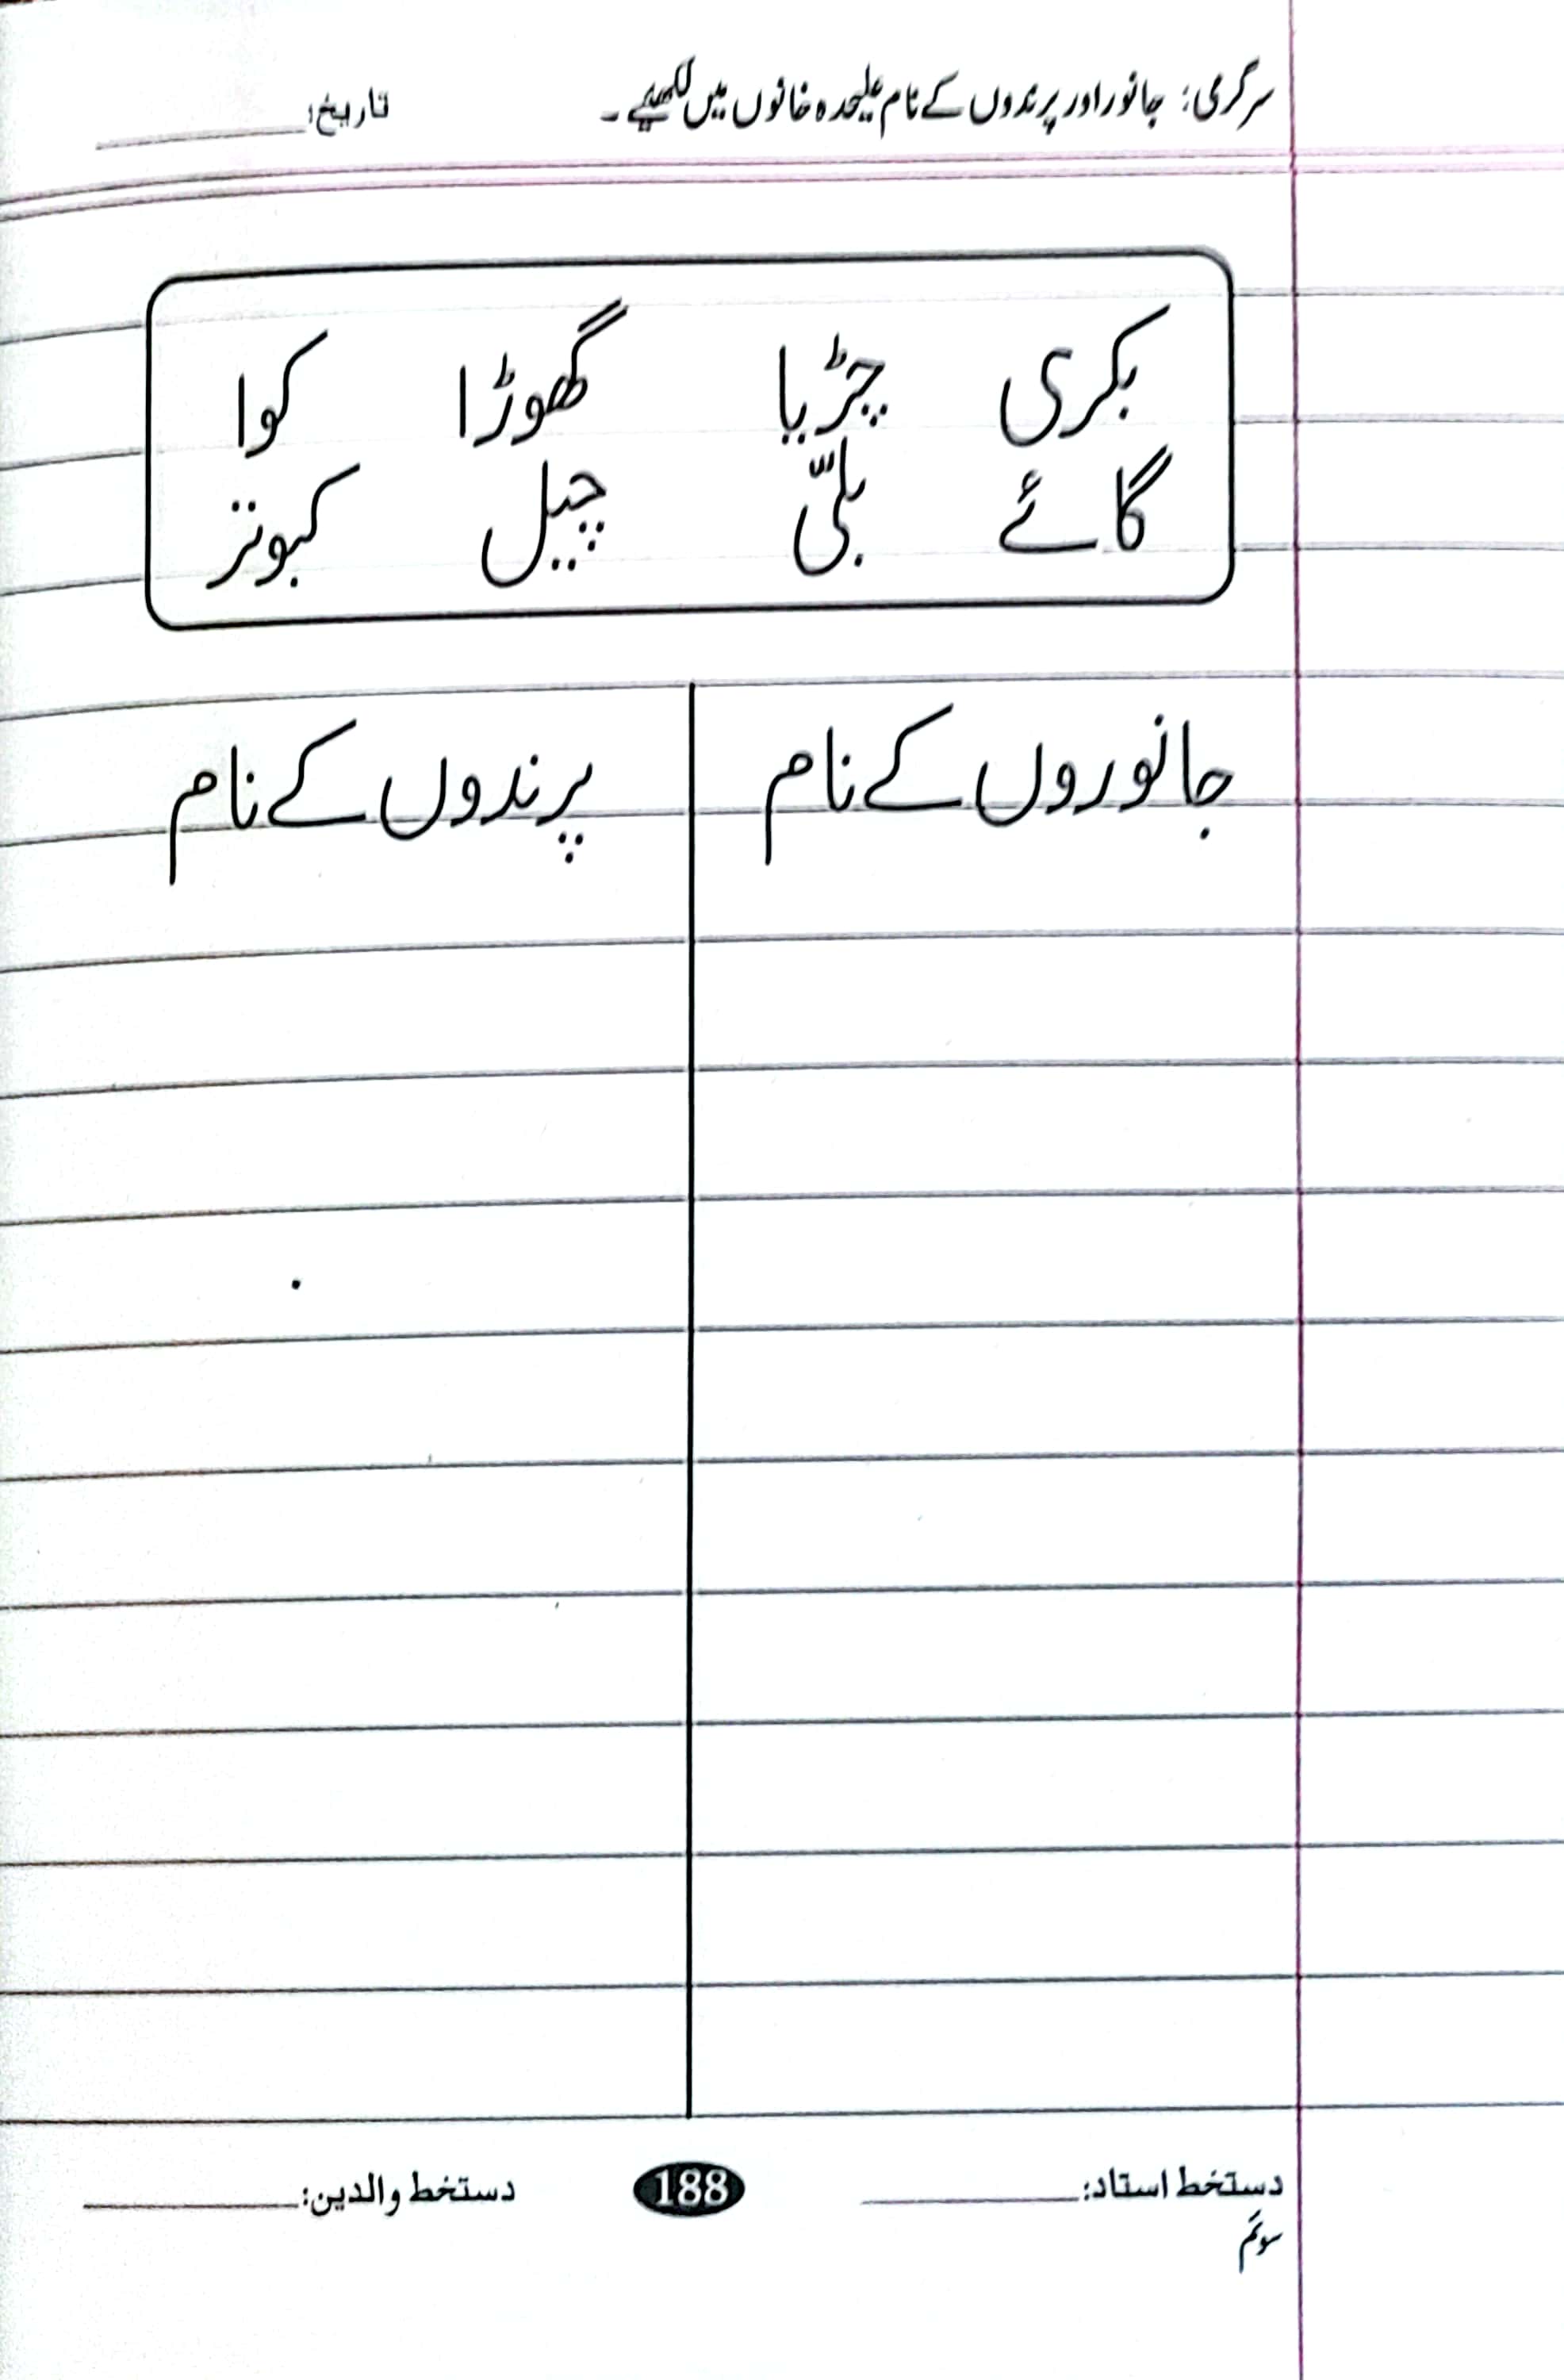 سرگرمی: جانور اور پرندوں کے نام علیحدہ خانوں میں لکھیے۔ تاریخ:
بکری چڑیا گھوڑا کوا
گائے بلّی چیل کبوتر
جانوروں کے نام پرندوں کے نام
دستخط استاد: 188 دستخط والدین:
سوئم